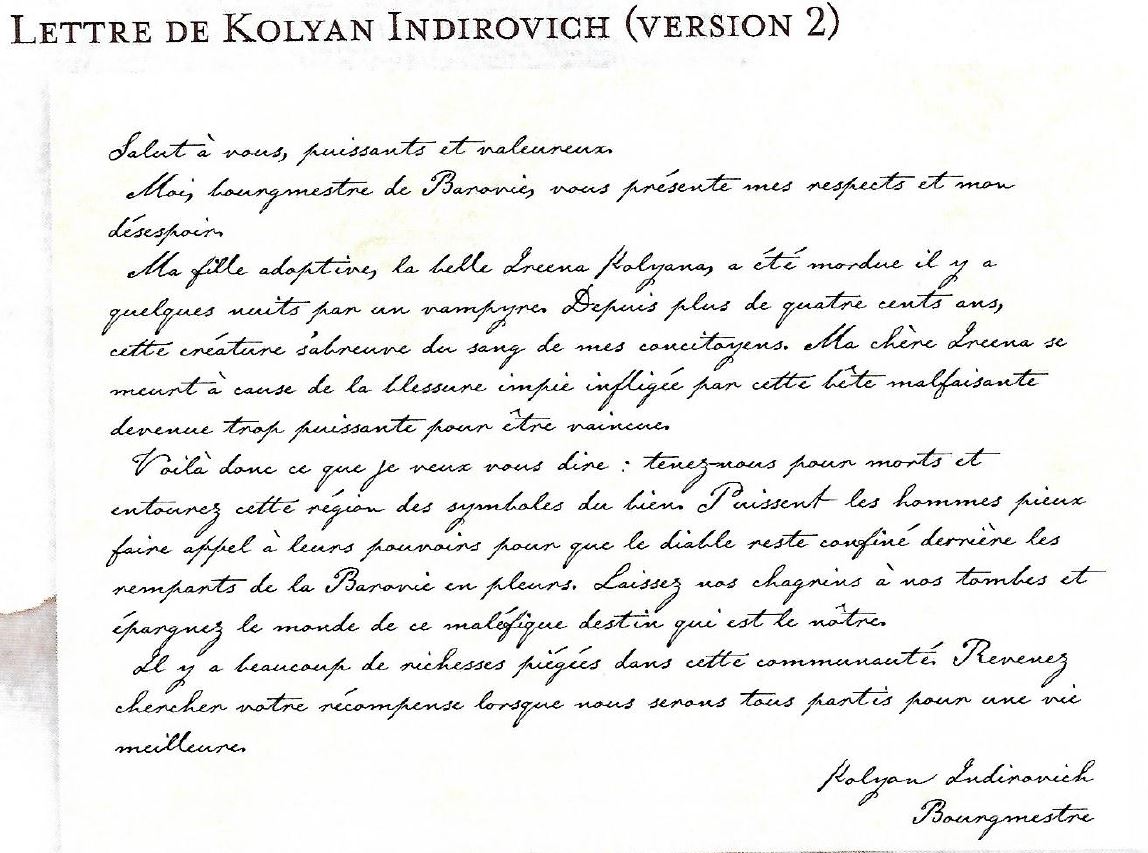 Lettre de Kolyan Indirovich (version 2)
Salut à vous, puissants et valeureux.
Moi, bourgmestre de Barovie, vous présente mes respects et mon
désespoir.
Ma fille adoptive, la belle Ireena Kolyana, a été mordue il y a
quelques nuits par un vampyre. Depuis plus de quatre cents ans,
cette créature s'abreuve du sang de mes concitoyens. Ma chère Ireena se
meurt à cause de la blessure impie infligée par cette bête malfaisante
devenue trop puissante pour être vaincue.
Voilà donc ce que je veux vous dire : tenez-nous pour morts et
entourez cette région des symboles du bien. Puissent les hommes pieux
faire appel à leurs pouvoirs pour que le diable reste confiné derrière les
remparts de la Barovie en pleurs. Laissez nos chagrins à nos tombes et
épargnez le monde de ce maléfique destin qui est le nôtre.
Il y a beaucoup de richesses piégées dans cette communauté. Revenez
chercher votre récompense lorsque nous serons tous partis pour une vie
meilleure.
Kolyan Indirovich
Bourgmestre